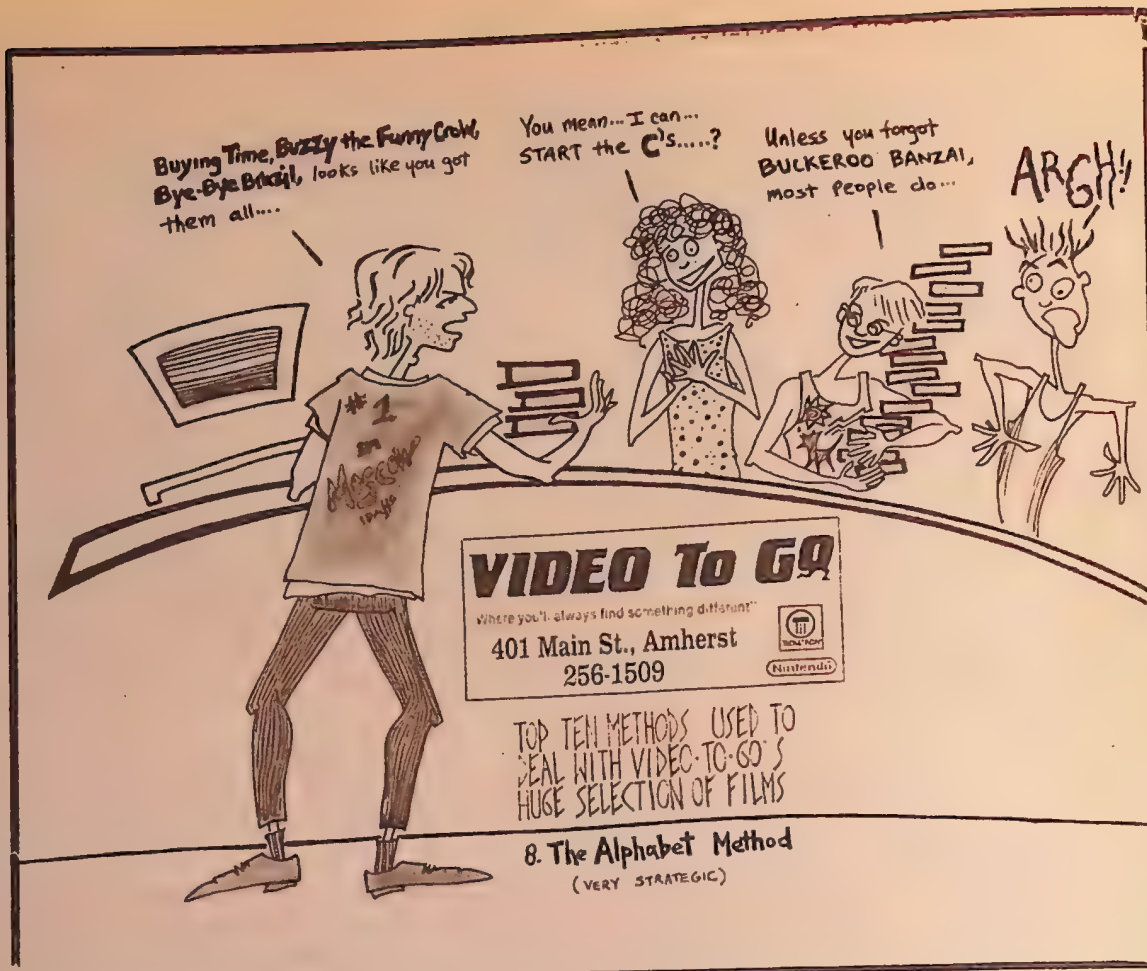 Buying Time, Buzzy the Funny Crow,
Bye-Bye Brazil, looks like you got
them all....
You mean... I can...
START the C's.....?
Unless you forgot
BUCKEROO BANZAI,
most people do...
ARGH!!
#1
IN
Moscow
IDAHO
VIDEO To GO
Where you'll always find something different"
401 Main St., Amherst
256-1509
Nintendo
TOP TEN METHODS USED TO
DEAL WITH VIDEO-TO-GO'S
HUGE SELECTION OF FILMS
8. The Alphabet Method
(VERY STRATEGIC)